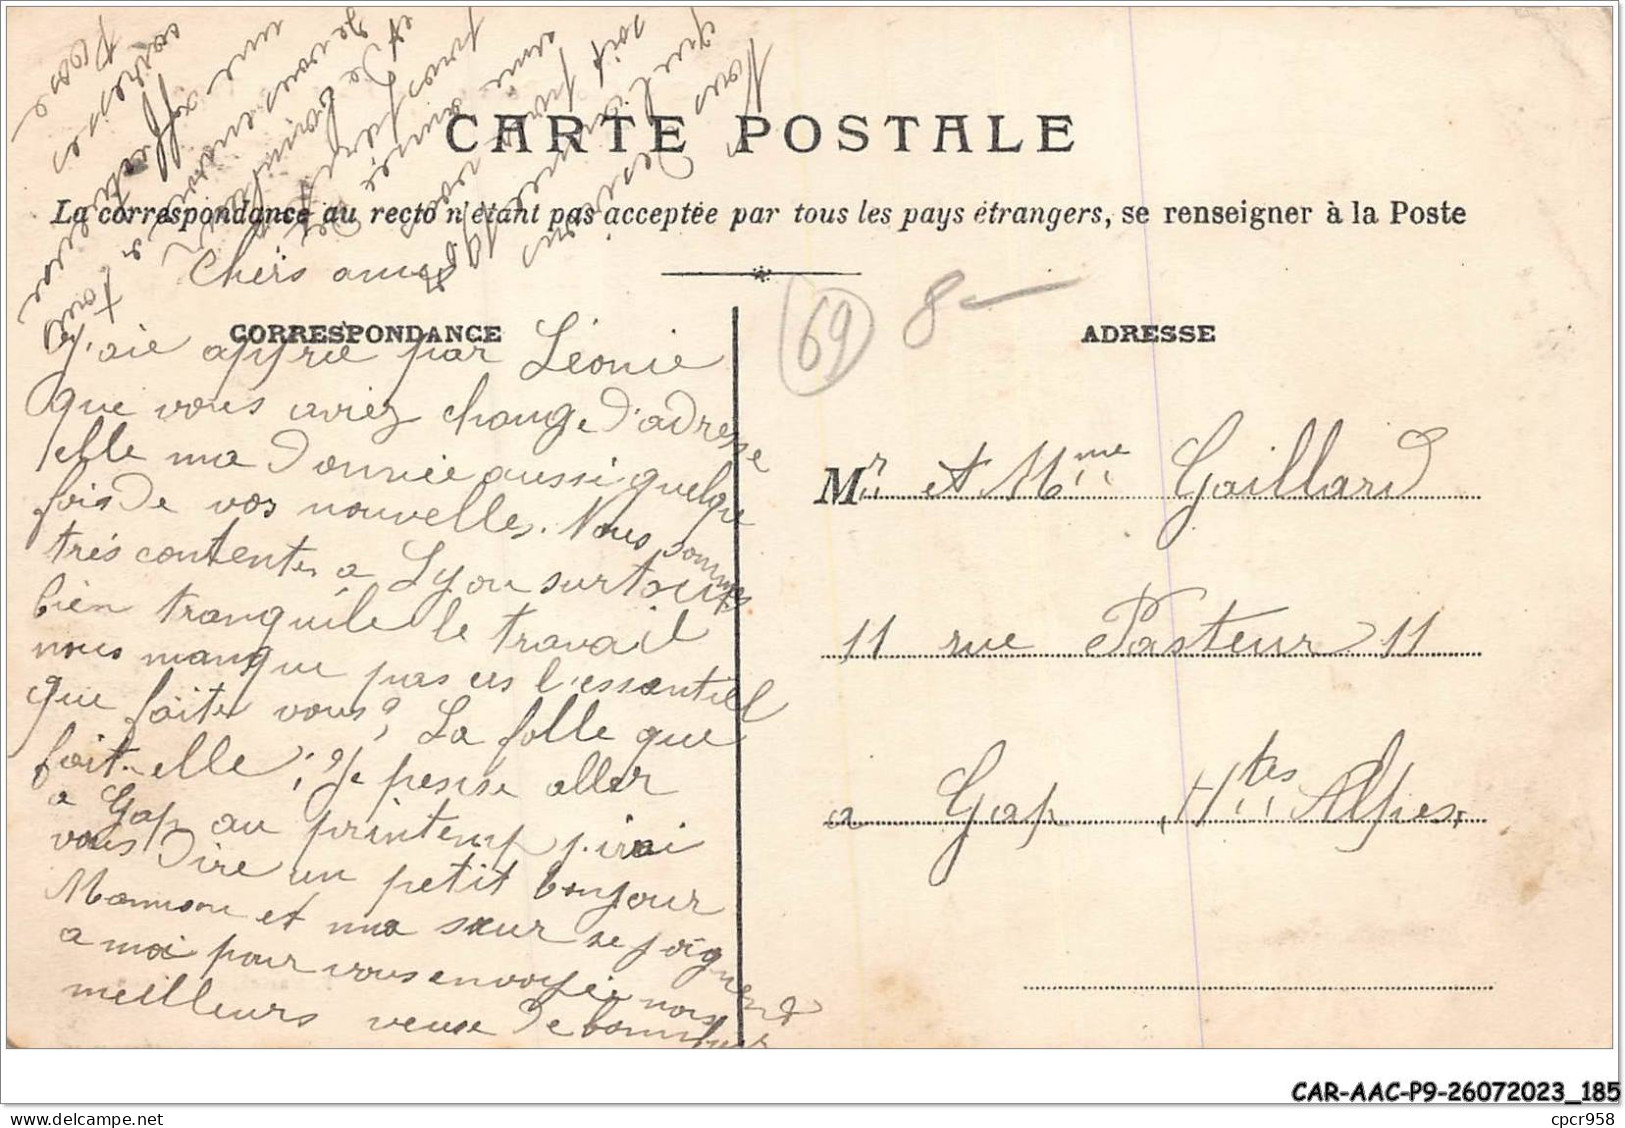 CARTE POSTALE
La correspondance au recto n'étant pas acceptée par tous les pays étrangers, se renseigner à la Poste
CORRESPONDANCE
ADRESSE
69
8
Chers amis
J'aie apprie par Léonie
que vous aviez change d'adresse
elle ma donnée aussi quelque
fois de vos nouvelles. Nous sommes
très contentes a Lyon surtout
bien tranquile le travail
nous manque pas ces l'essentiel
que faites vous? La folle que
fait-elle? Je pense aller
a Gap au printemp j'irai
vous dire un petit bonjour
Maman et ma sœur se joignent
a moi pour vous envoyée nos
meilleurs veuse de bonheur
et de
Nous
soit
année
une affectueuse
Mr et Mme Gaillard
11 rue Pasteur 11
a Gap Htes Alpes
CAR-AAC-P9-26072023_185
cpcr958